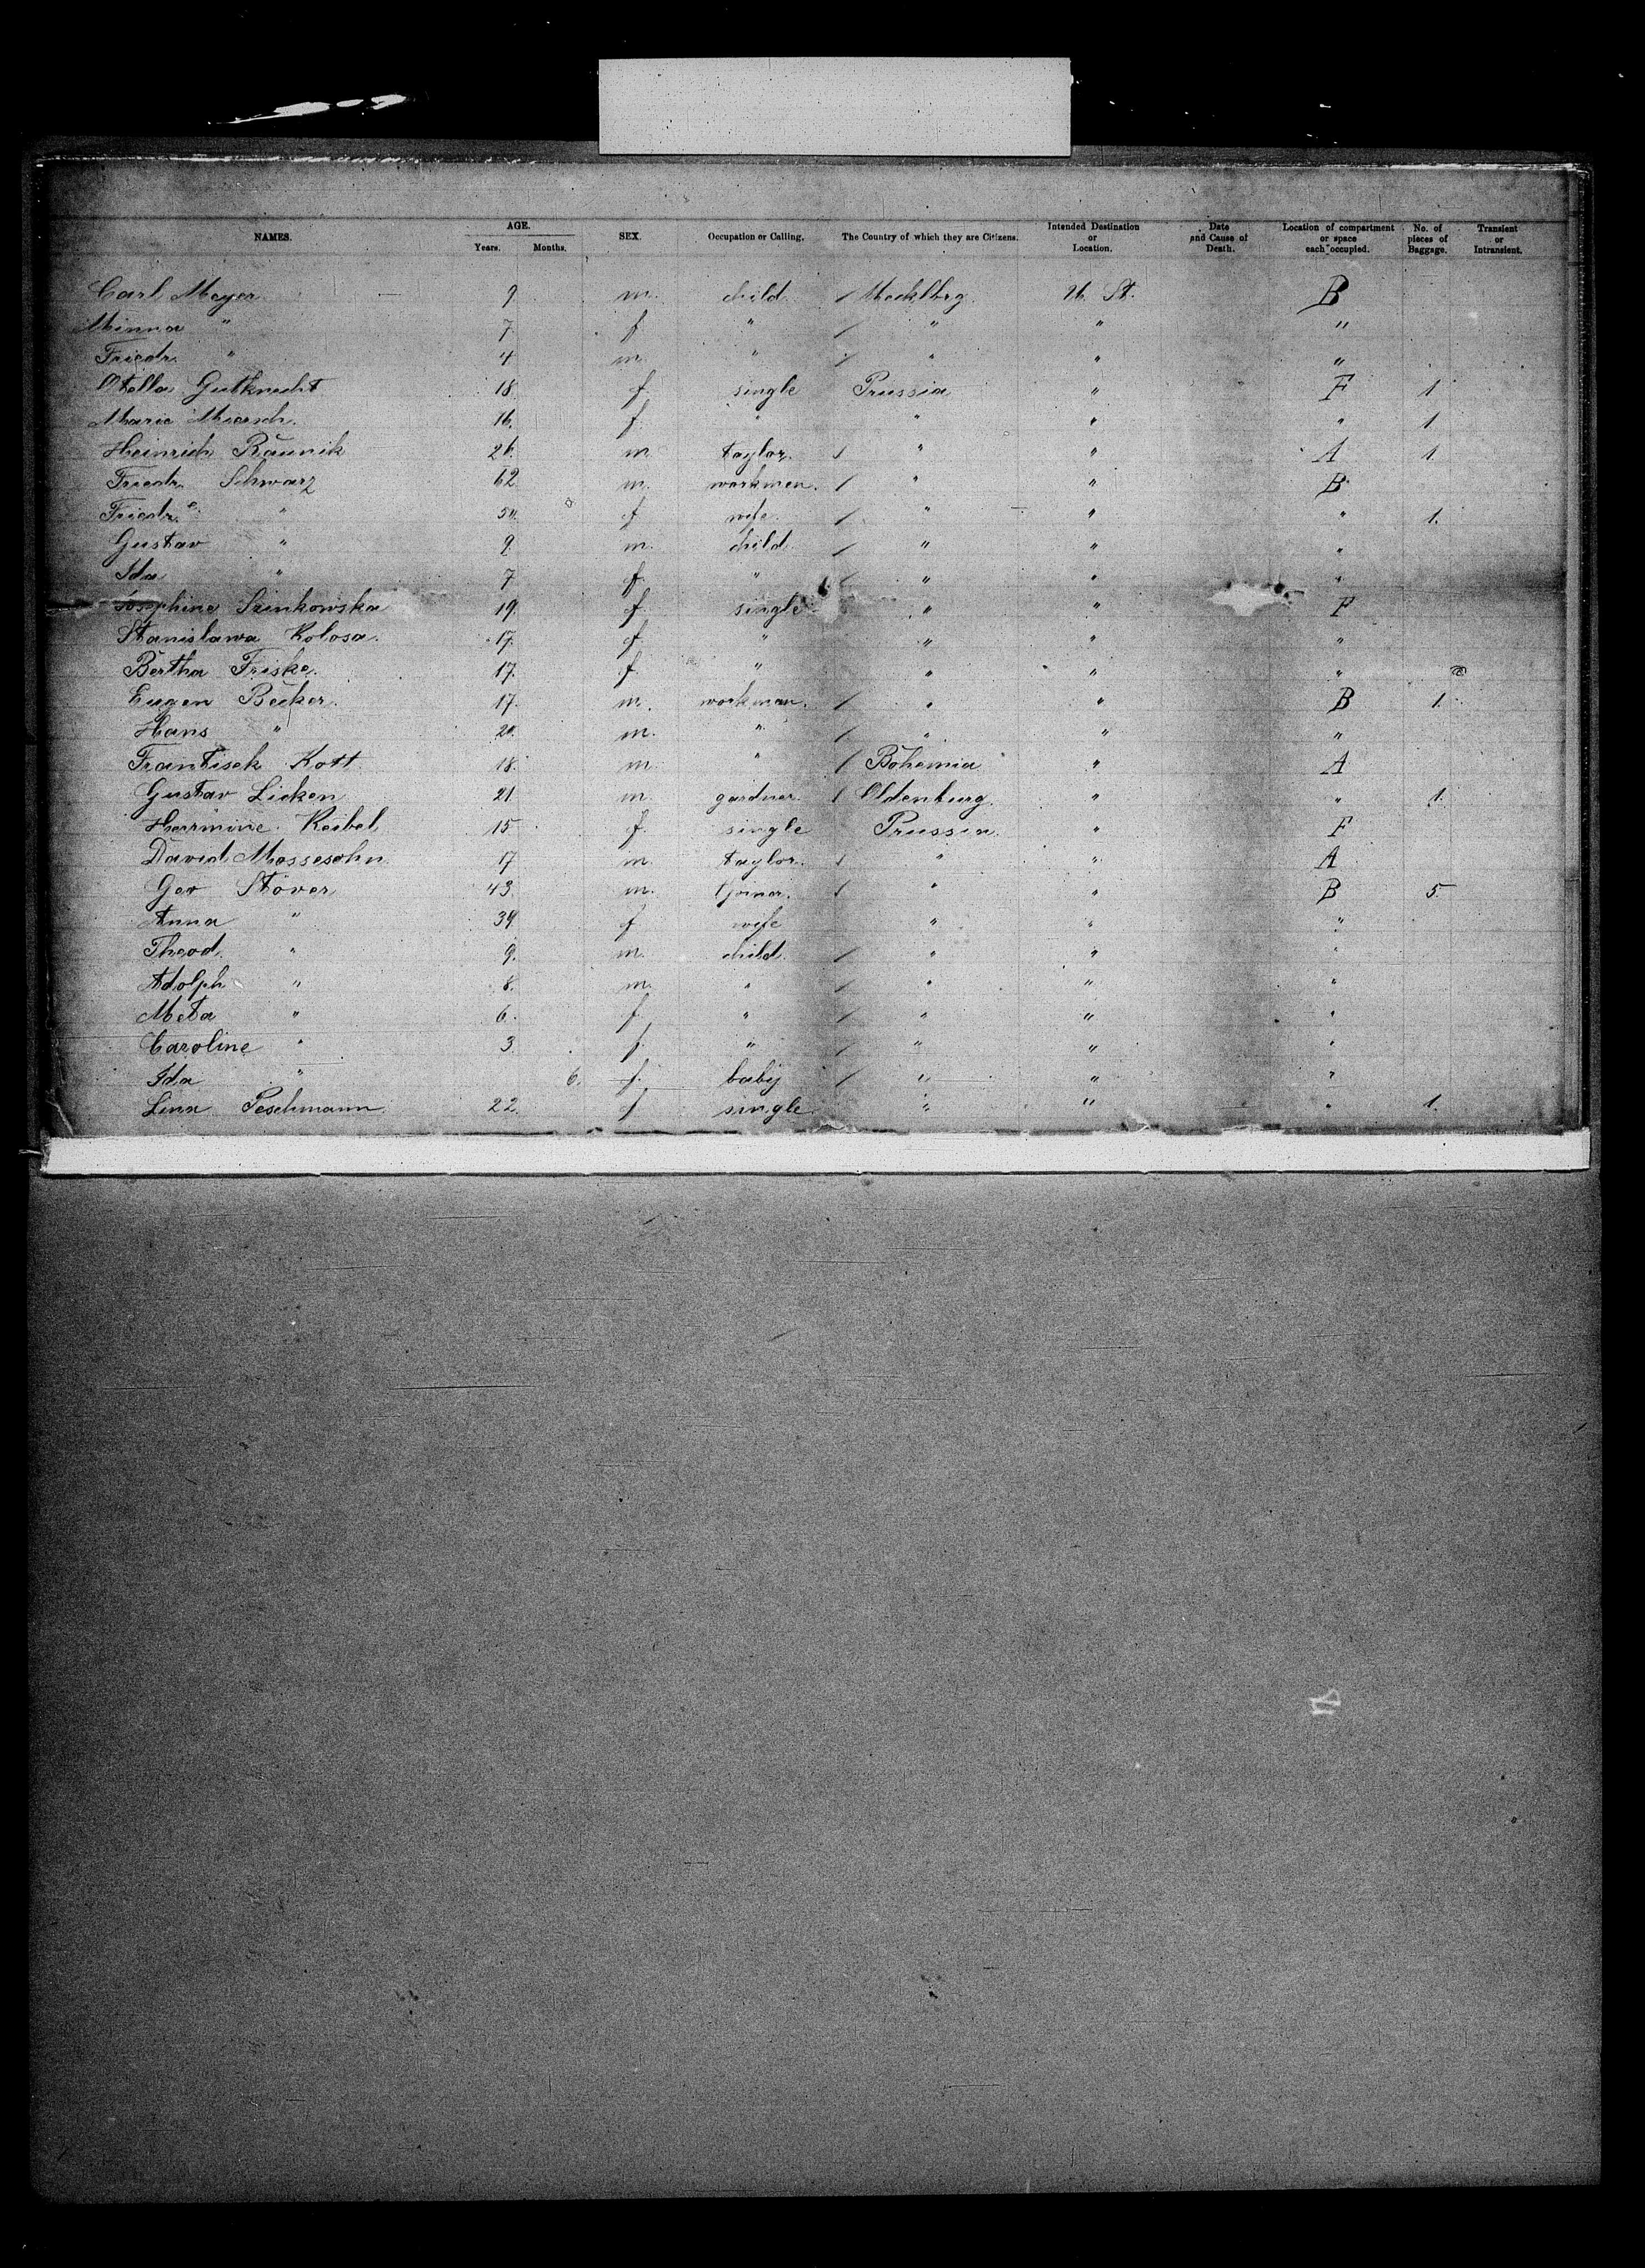 NAMES. AGE. Years. Months. SEX. Occupation or Calling. The Country of which they are Citizens. Intended Destination or Location. Date and Cause of Death. Location of compartment or space each occupied. No. of pieces of Baggage. Transient or Intransient.
Carl Meyer 9 m. child / Mecklbrg. U. St. B
Minna " 7. f " / " " "
Friedr. " 4 m. " / " " "
Otella Gutknecht 18 f. single Prussia " F 1
Marie Miersch. 16. f. " " " " 1
Heinrich Raunik 26. m. taylor. / " " A 1
Friedr. Schwarz 62 m. workmen. / " " B
Friedr.e " f wife / " " " 1.
Gustav " 9. m. child / " " "
Ida " 7 f. " / " " "
Josephine Szinkowska 19. f. single " " F
Stanislawa Kolosa. 17. f. " " " "
Bertha Friske. 17. f. " " " "
Eugen Becker. 17. m. workman. / " " B 1.
Hans " 20. m. " / " " "
Frantisek Kott 18. m " / Bohemia " A
Gustav Licken 21. m gardner. / Oldenburg. " " 1.
Hermine Keibel 15 f. single Prussia " F
David Mossesohn 17 m. taylor. / " " A
Stöver 43. m. / " " B 5.
Anna " 39 f wife " " "
Theod. " 9. m. child. / " " "
Adolph " 8. m. " / " " "
Meta " 6. f " / " " "
Caroline " 3. f. " / " " "
Ida " 6. f. baby / " " "
Lina Peschmann 22. f single " " " 1.